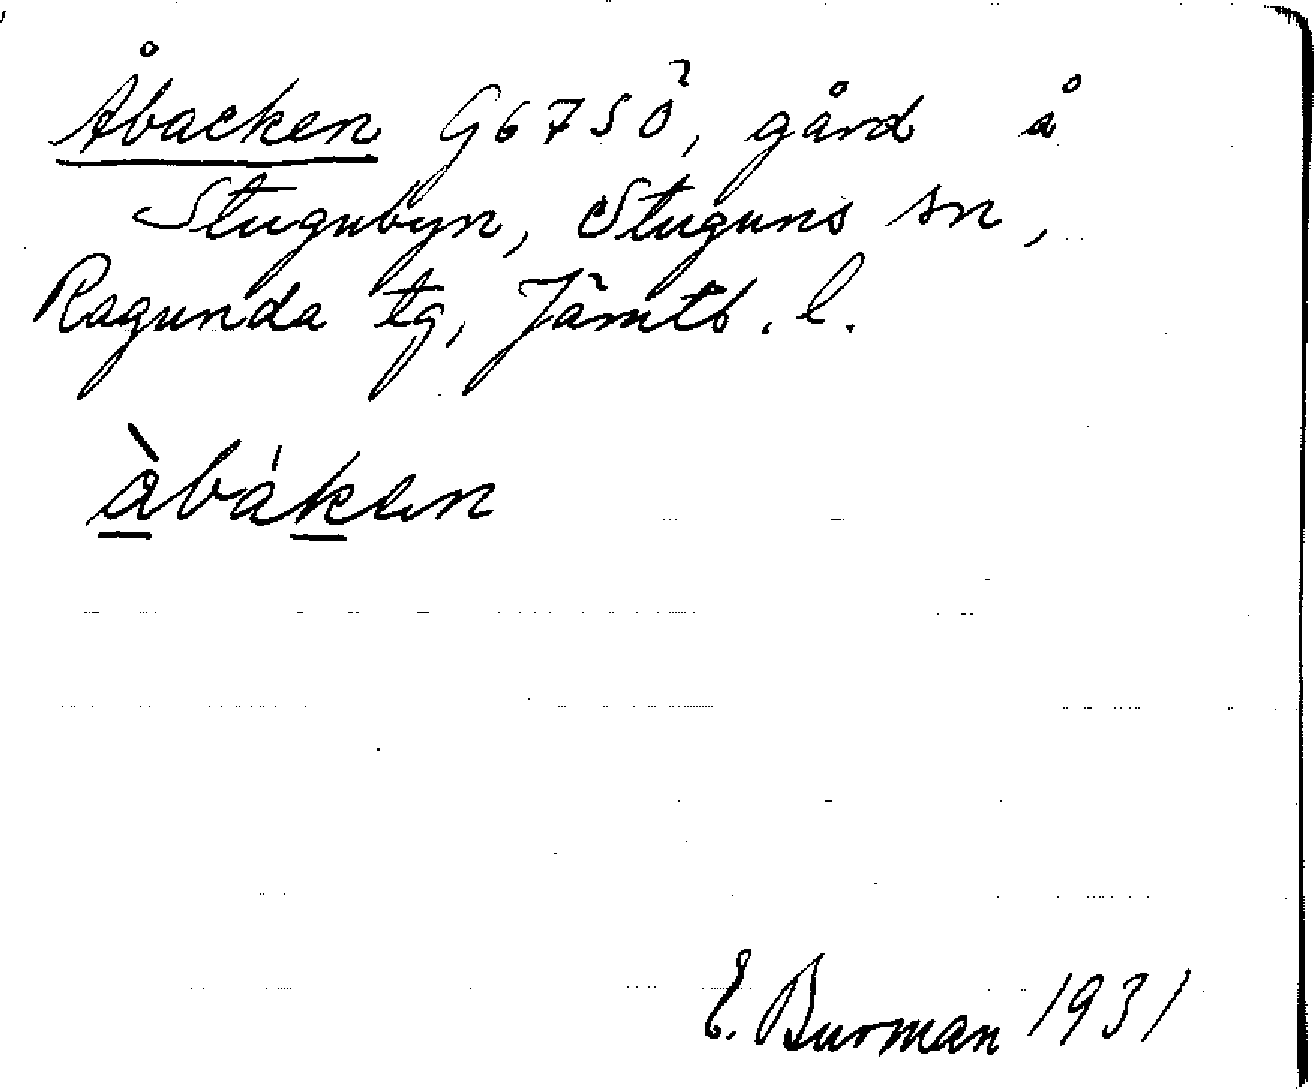 Åbacken G67SÖ, gård å
Stugubyn, Stuguns sn,
Ragunda tg, Jämtl. l.
å̀bákan
E. Burman 1931